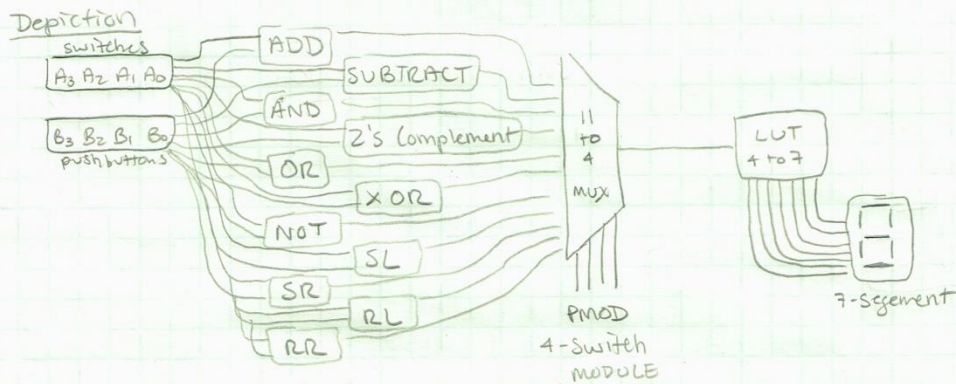 Depiction
switches
A3 A2 A1 A0
B3 B2 B1 B0
pushbuttons
ADD
SUBTRACT
AND
2's Complement
OR
XOR
NOT
SL
SR
RL
RR
11
to
4
MUX
PMOD
4-switch
MODULE
LUT
4 to 7
7-segement